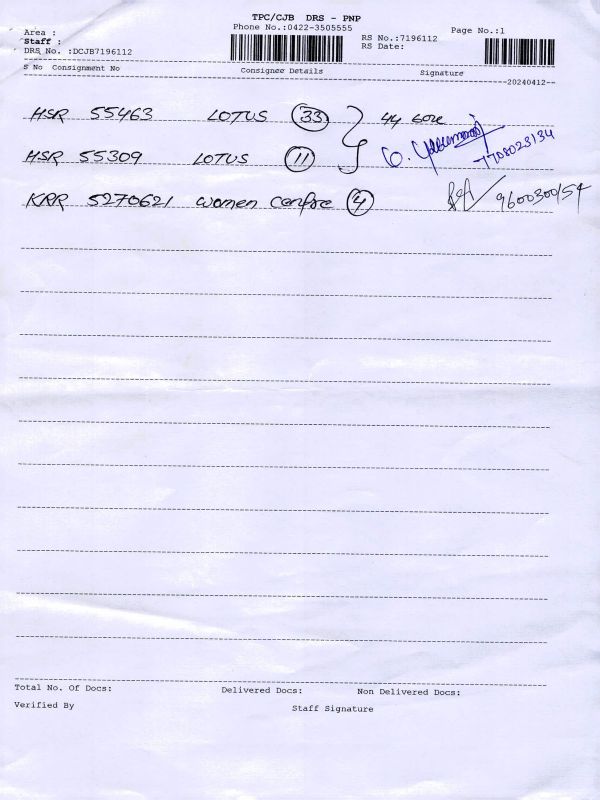 TPC/CJB DRS - PNP
Area : Phone No.:0422-3505555 Page No.:1
Staff : RS No.:7196112
DRS No. :DCJB7196112 RS Date:
S No Consignment No Consignee Details Signature
--20240412--
HSR 55463 LOTUS 33 44 core
HSR 55309 LOTUS 11 G. 7708023134
KRR 5270621 women centre 4 9600300154
Total No. Of Docs: Delivered Docs: Non Delivered Docs:
Verified By Staff Signature